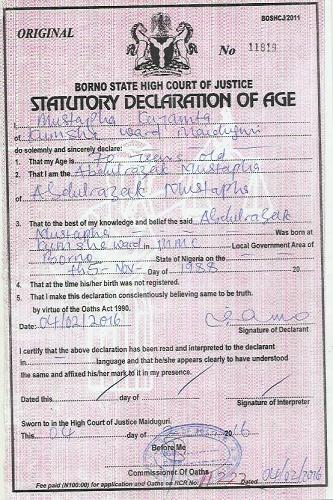 BOSHCJ/2011
ORIGINAL
No 11819
BORNO STATE HIGH COURT OF JUSTICE
STATUTORY DECLARATION OF AGE
I, Mustapha
of Bumshe ward Maiduguri
do solemnly and sincerely declare:
1. That my Age is 70 Years old
2. That I am the Abdulrazak Mustapha
of Abdulrazak Mustapha
3. That to the best of my knowledge and belief the said Abdulrazak
Mustapha Was born at
Bumshe ward in MMC Local Government Area of
Borno State of Nigeria on the
5 - Nov - Day of 1988 20
4. That at the time his/her birth was not registered.
5. That I make this declaration consciously believing same to be truth.
by virtue of the Oaths Act 1990.
Date: 04/02/2016
Signature of Declarant
I certify that the above declaration has been read and interpreted to the declarant
in language and that he/she appears clearly to have understood
the same and affixed his/her mark to it in my presence.
Dated this day of
Signature of Interpreter
Sworn to in the High Court of Justice Maiduguri.
This 04 day of 2016
Before Me
Commissioner Of Oaths
Fee paid (N100:00) for application and Oaths on RCR No Dated 04/02/2016